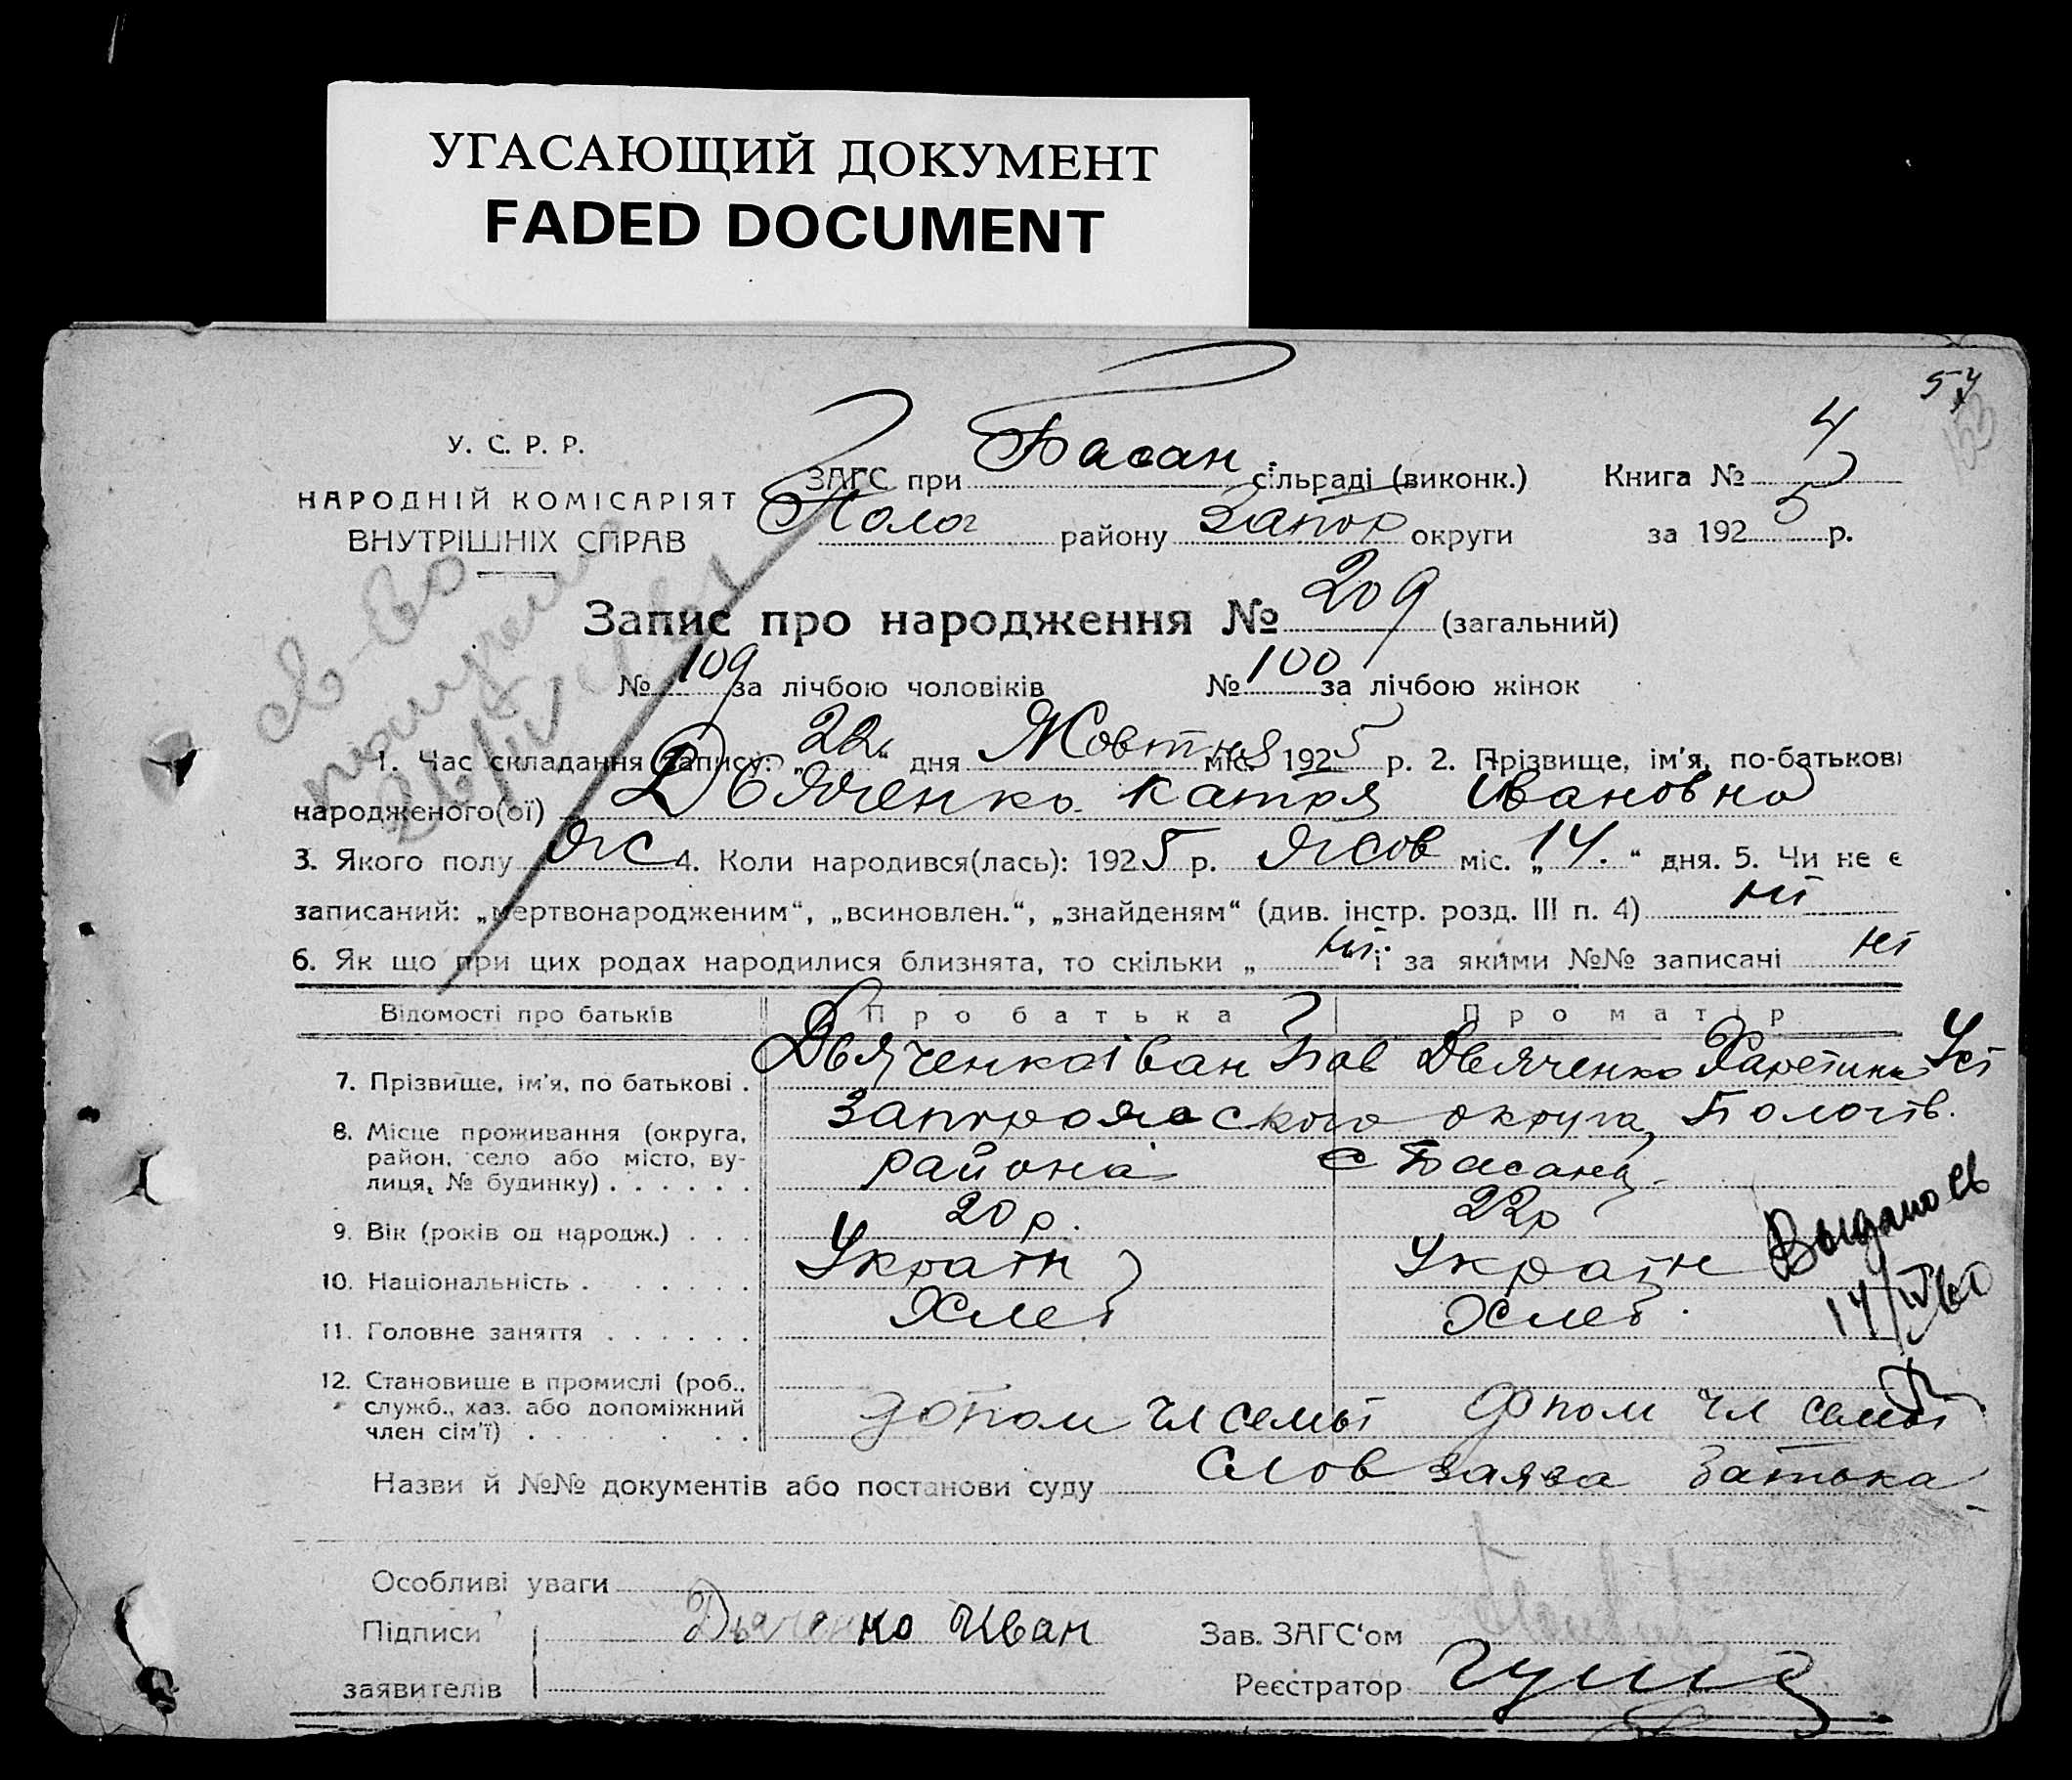 УГАСАЮЩИЙ ДОКУМЕНТ
FADED DOCUMENT
57
153
У. С. Р. Р.
НАРОДНІЙ КОМІСАРІЯТ
ВНУТРІШНІХ СПРАВ
ЗАГС при Басан сільраді (виконк.) Книга № 4
Полог району Запор округи за 1925 р.
Запис про народження № 209 (загальний)
№ 109 за лічбою чоловіків № 100 за лічбою жінок
1. Час складання запису: „22“ дня Жовтня міс. 1925 р. 2. Прізвище, ім'я, по-батькові
народженого(ої) Дьяченко Катря Івановна
3. Якого полу ж 4. Коли народився(лась): 1925 р. Жов міс. „14.“ дня. 5. Чи не є
записаний: „мертвонародженим“, „всиновлен.“, „знайденям“ (див. інстр. розд. III п. 4) ні
6. Як що при цих родах народилися близнята, то скільки „ ні і за якими №№ записані ні
Відомості про батьків Про батька Про матір
7. Прізвище, ім'я, по батькові . Дьяченко Іван Пав Дьяченко Харетина Уст
8. Місце проживання (округа, район, село або місто, вулиця, № будинку) . . . . . . Запорожского округа, Пологів.
района с Басань
9. Вік (років од народж.) . . . 20 р. 22 р
10. Національність . . . . . Україн Україн
11. Головне заняття . . . . . . Хлеб Хлеб.
Выдано св
14/IV 60
12. Становище в промислі (роб., служб., хаз. або допоміжний член сім'ї) . . . . . . допом чл семьі допом чл семьі
Назви й №№ документів або постанови суду Слов заява батька
Особливі уваги
Підписи Дьяченко Иван Зав. ЗАГС'ом
заявителів Реєстратор